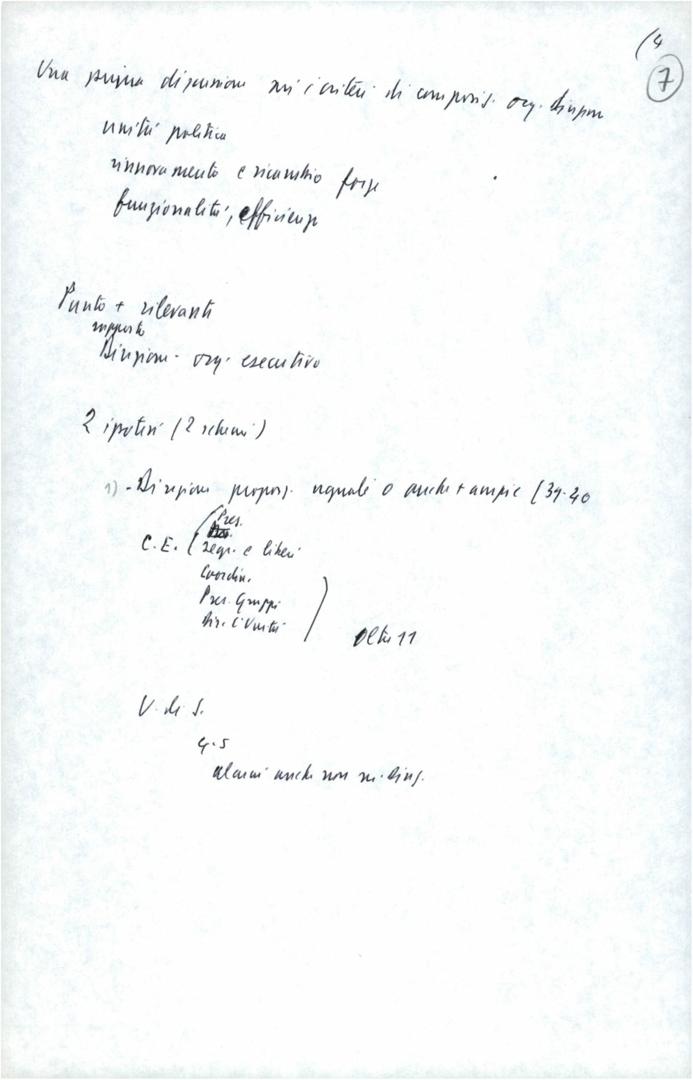 (4
7
Una prima discussione sui criteri di composiz. org. dirigen
unità politica
rinnovamento e ricambio forze
funzionalità, efficienza
Punto + rilevanti
rapporto
Direzione - org. esecutivo
2 ipotesi (2 schemi)
1) - Direzione propos. uguale o anche + ampie (39-40
Pres.
C.E. ( segr. e liberi
Coordin.
Pres. Gruppi
Dir. l'Unità
Oltre 11
V. di S.
4-5
alcuni anche non in Direz.